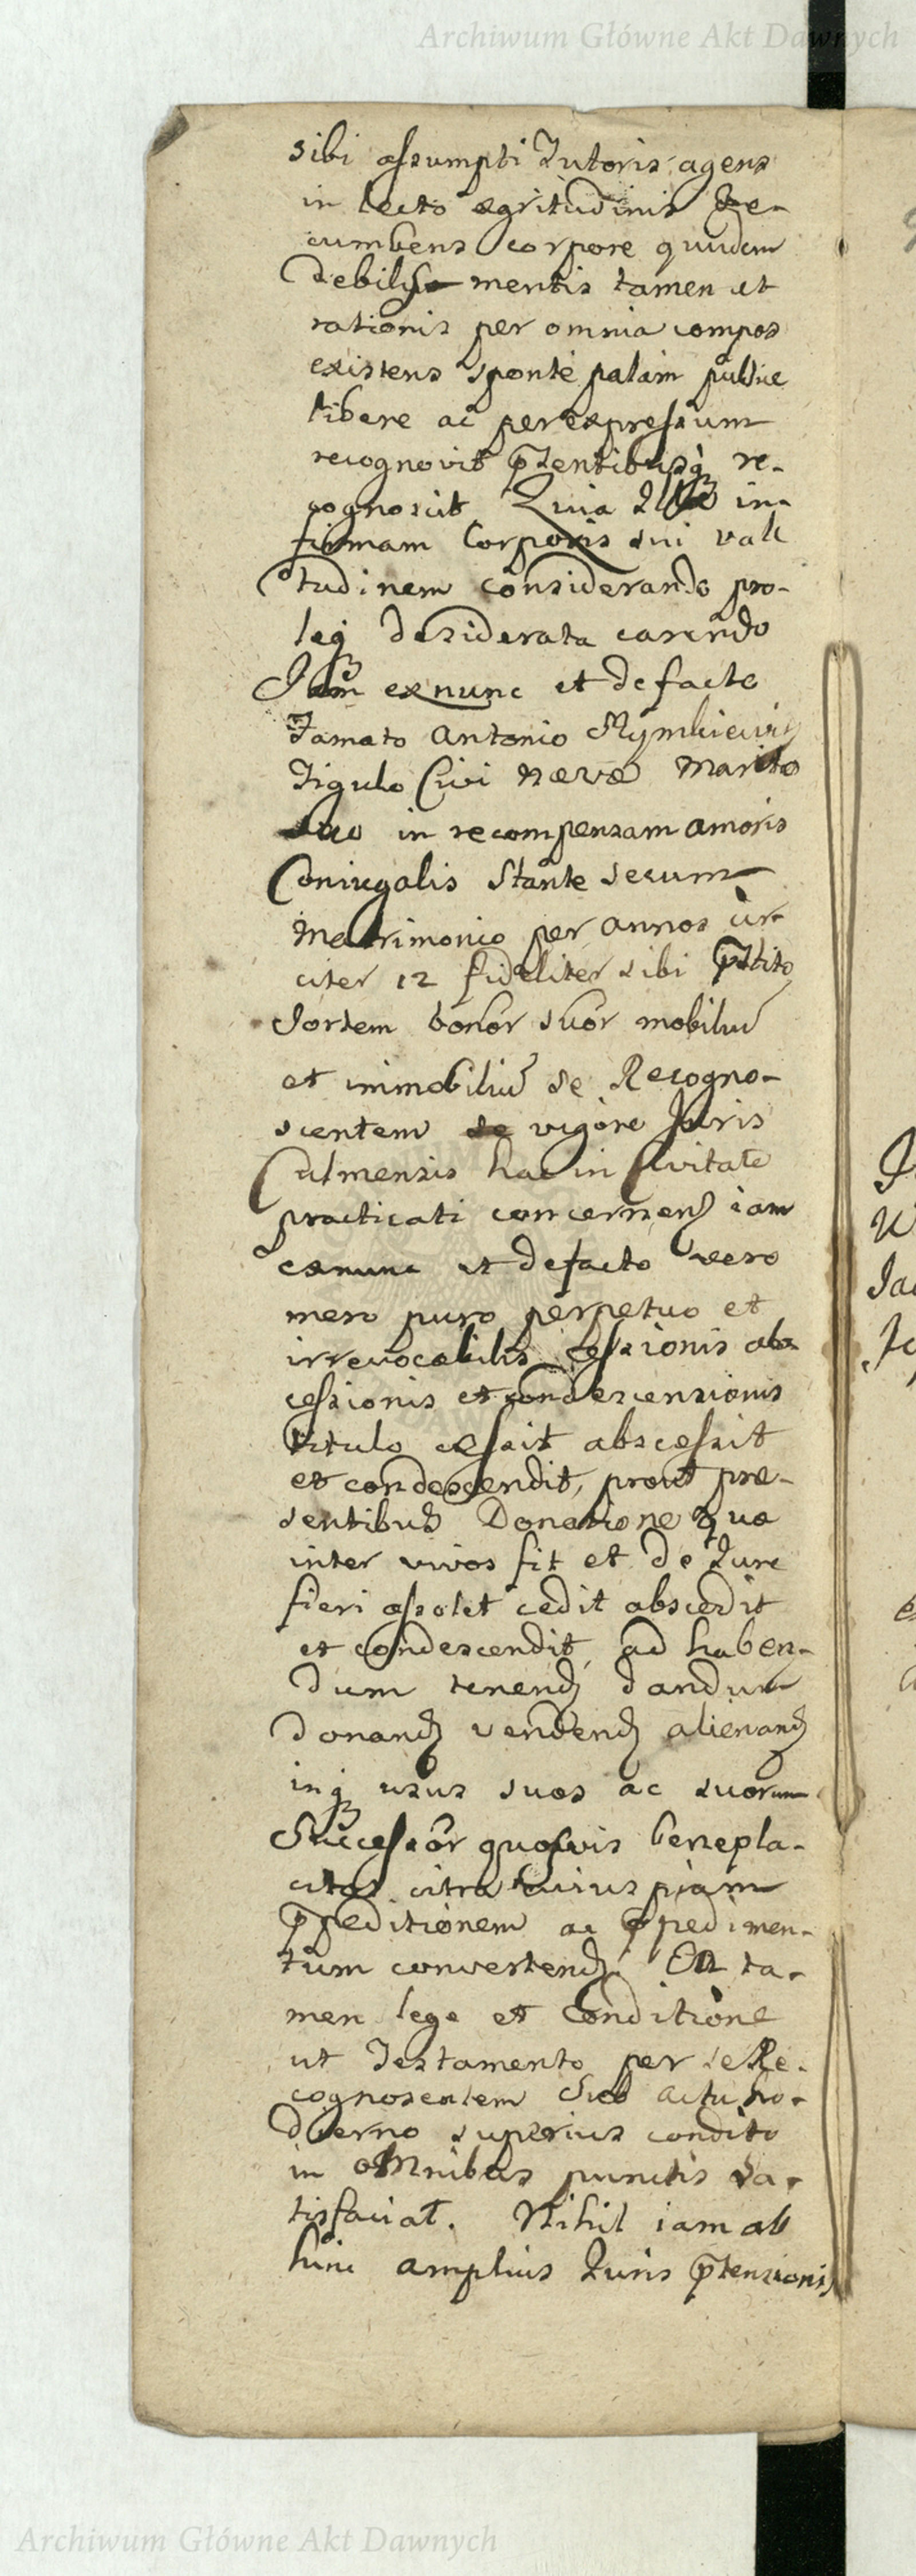 Archiwum Główne Akt Dawnych
sibi assumpti Tutoris agens
in lecto ægritudinis De-
cumbens corpore quidem
debilis mentis tamen et
rationis per omnia compos
existens sponte palam publice
libere ac per expressum
recognovit p̄sentibusq̨ re-
cognoscit Quia Illa in-
firmam Corporis sui vale
tudinem considerando pro-
leq̨ desiderata carendo
Iam exnunc et de facto
Famato Antonio
Figulo Civi Marito
suo in recompensam amoris
Coniugalis Stante secum
Matrimonio per annos cir-
citer 12 fideliter sibi p̄stito
Sortem bonor suor mobiliu̅
et immobiliu̅ se Recogno-
scentem vigore Iuris
Culmensis hac in Civitate
practicati concernen̨ iam
exnunc et defacto vero
mero puro perpetuo et
irrevocabilis cessionis abs
cessionis et condescensionis
titulo cessit abscessit
et condescendit, prout præ-
sentibus Donatione quæ
inter vivos fit et de Iure
fieri assolet cedit abscedit
et condescendit, ad haben-
dum tenend̨ dandum
donand̨ vendend̨ alienand̨
inq̨ usus suos ac suorum
Successor quosvis benepla-
citos citra cuiuspiam
p̄peditionem ac p̄pedimen-
tum convertend̨. Ea ta-
men lege et Conditione
ut Testamento per se Re-
cognoscentem Sub actu ho-
dierno superius condito
in omnibus punctis sa-
tisfaciat. Nihil iam ab
hinc amplius Iuris p̄tensionis
Archiwum Główne Akt Dawnych